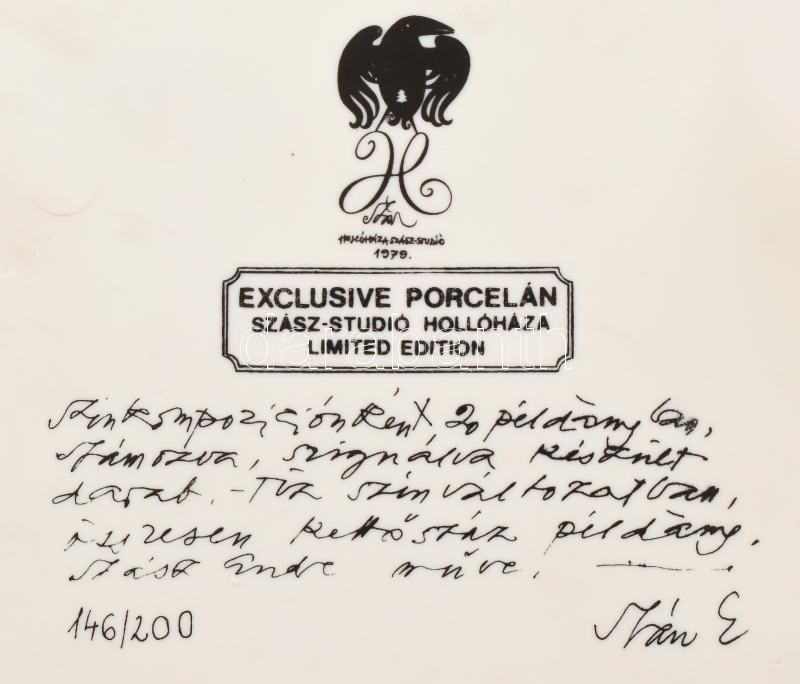 H
Szász
HOLLÓHÁZA SZÁSZ-STUDIÓ
1979.
EXCLUSIVE PORCELÁN
SZÁSZ-STUDIÓ HOLLÓHÁZA
LIMITED EDITION
darabanth
Szinkompoziciónként 20 példányban,
számozva, szignálva készült
darab. - Tiz szinváltozatban,
összesen kettőszáz példány.
Szász Endre műve.
146/200
Szász E